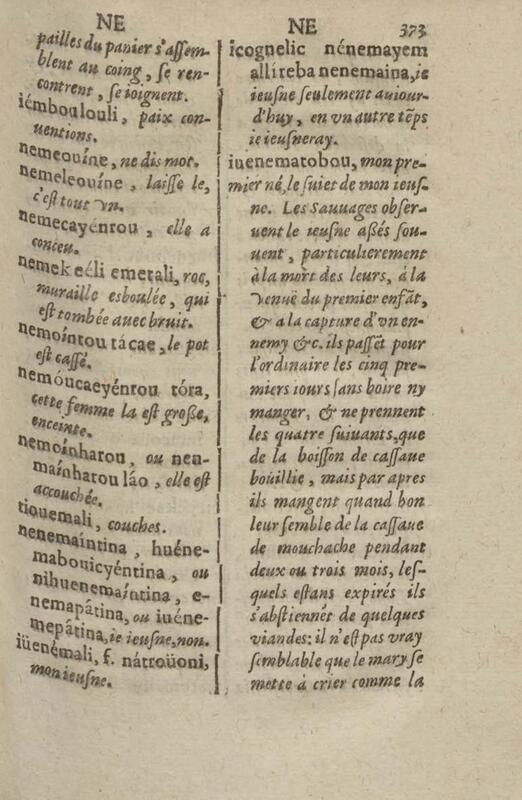 NE
pailles du panier s'assem-
blent au coing, se ren-
contrent, se ioignent.
iémboulouli, paix con-
uentions.
nemeouíne, ne dis mot.
nemeleouíne, laisse le,
c'est tout vn.
nemecayénrou, elle a
conceu.
nemekeéli emerali, roc,
muraille esboulée, qui
est tombée auec bruit.
nemoíntou tácae, le pot
est cassé.
nemóucaeyénrou tóra,
cette femme la est große,
enceinte.
nemoínharou, ou nen-
maínharou láo, elle est
accouchée.
tiouemali, couches.
nenemaíntina, huéne-
mabouicyéntina, ou
nihuenemaíntina, e-
nemapátina, ou iuéne-
mepátina, ie ieusne, non.
iüenémali, f. nátroüoni,
mon ieusne.
NE 373
icognelic nénemayem
allíreba nenemaina, ie
ieusne seulement auiour-
d'huy, en vn autre tẽps
ie ieusneray.
iuenematobou, mon pre-
mier né, le suiet de mon ieus-
ne. Les Sauuages obser-
uent le ieusne aßés sou-
uent, particulierement
à la mort des leurs, á la
venuë du premier enfãt,
& a la capture d'vn en-
nemy &c. ils passẽt pour
l'ordinaire les cinq pre-
miers iours sans boire ny
manger, & ne prennent
les quatre suiuants, que
de la boisson de cassaue
boüillie, mais par apres
ils mangent quand bon
leur semble de la cassaue
de mouchache pendant
deux ou trois mois, les-
quels estans expirés ils
s'abstiennẽt de quelques
viandes: il n'est pas vray
semblable que le mary se
mette à crier comme la